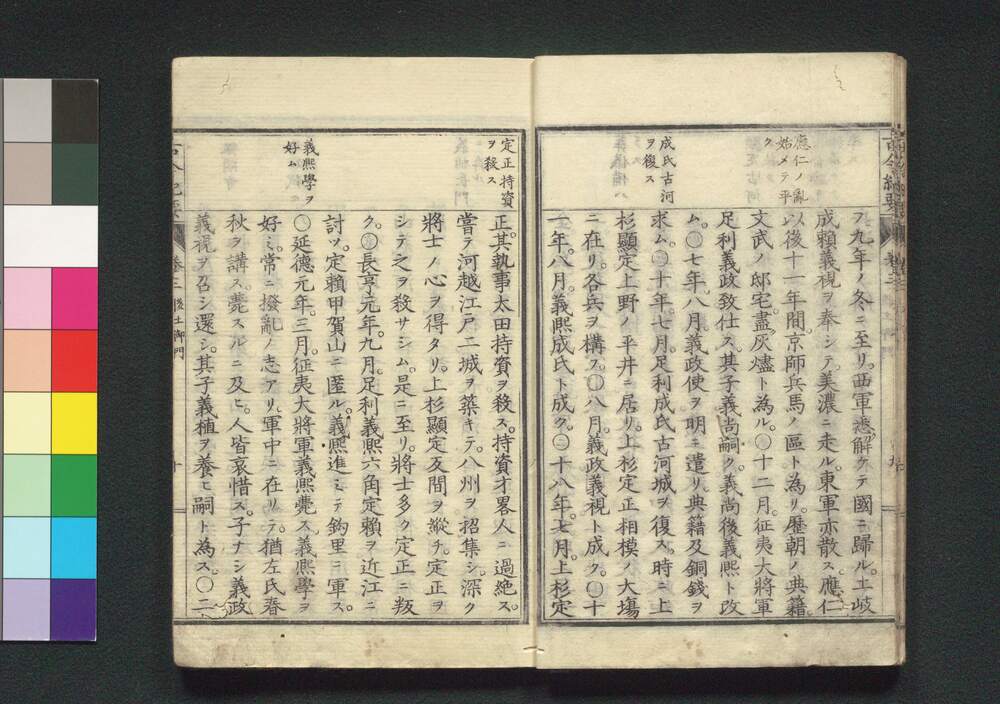 應仁ノ亂
始メテ平
ク
成氏古河
ヲ復ス
ヲ九年ノ冬ニ至リ。西軍遂解ケテ國ニ歸ル。土岐
成頼義視ヲ奉シテ美濃ニ走ル。東軍亦散ス。應仁
以後十一年間。京師兵馬ノ區ト為リ。歴朝ノ典籍。
文武ノ邸宅。盡ク灰燼ト為ル。〇十二月。征夷大將軍
足利義政致仕ス。其子義尚嗣ク。義尚後義熙ト改
ム。〇七年。八月。義政使ヲ明ニ遣リ典籍及銅錢ヲ
求ム。〇十年。七月。足利成氏古河城ヲ復ス。時ニ上
杉顯定上野ノ平井ニ居リ。上杉定正相模ノ大塲
ニ在リ。各兵ヲ構ス。〇八月。義政義視ト成ク。〇十
一年。八月。義熙成氏ト成ク。〇十八年。七月。上杉定
定正持資
ヲ殺ス
義熙學ヲ
好ム
正。其執事太田持資ヲ殺ス。持資才畧人ニ過絶ス。
嘗テ河越江戸二城ヲ築キテ。八州ヲ招集シ。深ク
將士ノ心ヲ得タリ。上杉顯定反間ヲ縱チ。定正ヲ
シテ之ヲ殺サシム。是ニ至リ。將士多ク定正ニ叛
ク。〇長享元年。九月。足利義熙六角定頼ヲ近江ニ
討ツ。定頼甲賀山ニ匿ル。義熙進ミテ鈎里ニ軍ス。
〇延德元年。三月。征夷大將軍義熙薨ス。義熙學ヲ
好ミ。常ニ撥亂ノ志アリ。軍中ニ在リテ。猶左氏春
秋ヲ講ス。薨スルニ及ヒ。人皆哀惜ス。子ナシ義政
義視ヲ召シ還シ。其子義植ヲ養ヒ嗣ト為ス。〇二
卷三
後土御門
十